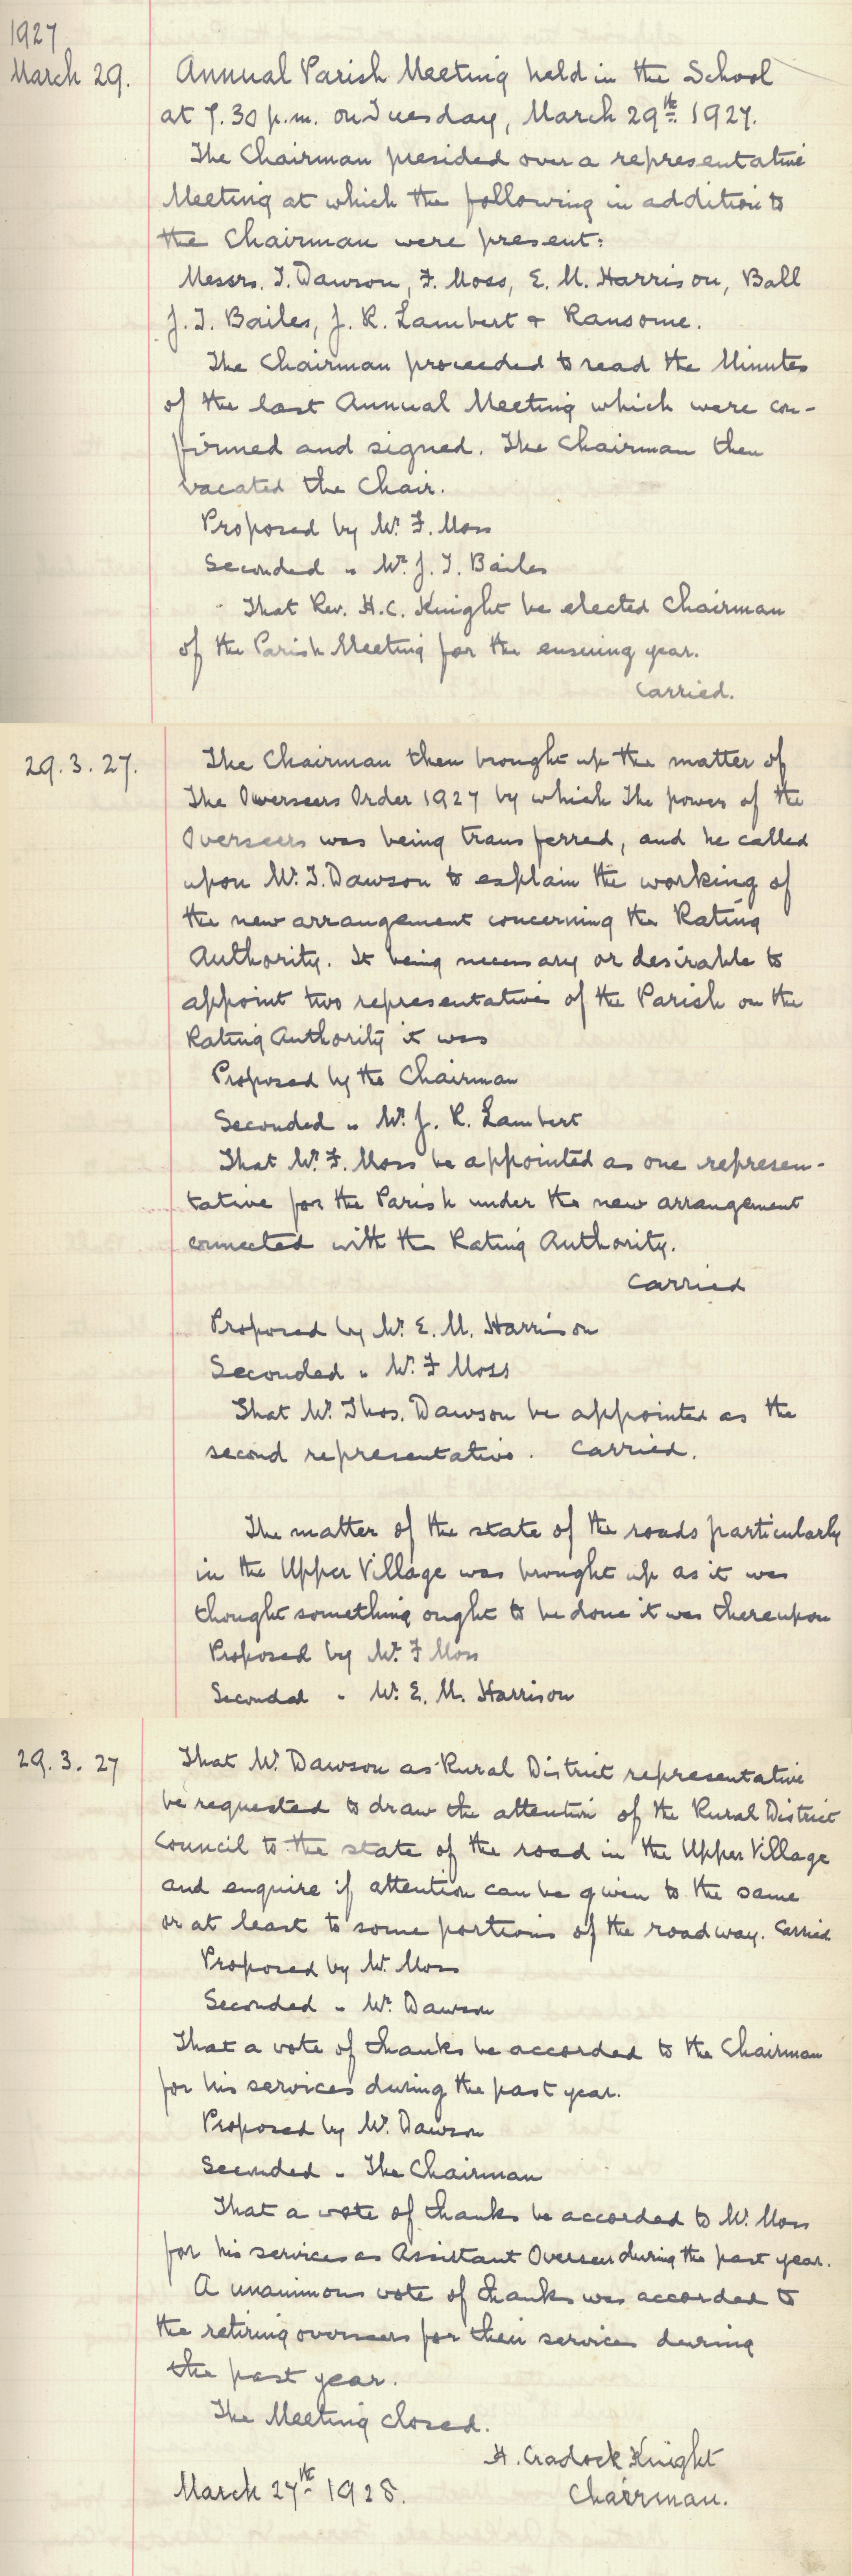 1927
March 29.
Annual Parish Meeting held in the School
at 7.30 p.m. on Tuesday, March 29th 1927.
The Chairman presided over a representative
Meeting at which the following in addition to
the Chairman were present:
Messrs. T. Dawson, F. Moss, E. M. Harrison, Ball
J. T. Bailes, J. R. Lambert & Ransome.
The Chairman proceeded to read the Minutes
of the last Annual Meeting which were con-
firmed and signed. The Chairman then
vacated the Chair.
Proposed by Mr. F. Moss
Seconded " Mr. J. T. Bailes
That Rev. H.C. Knight be elected Chairman
of the Parish Meeting for the ensuing year.
Carried.
29.3.27.
The Chairman then brought up the matter of
The Overseers Order 1927 by which the power of the
Overseers was being transferred, and he called
upon Mr. T. Dawson to explain the working of
the new arrangement concerning the Rating
Authority. It being necessary or desirable to
appoint two representatives of the Parish on the
Rating Authority it was
Proposed by the Chairman
Seconded " Mr. J. R. Lambert
That Mr. F. Moss be appointed as one represen-
tative for the Parish under the new arrangement
connected with the Rating Authority.
Carried
Proposed by Mr. E. M. Harrison
Seconded " Mr. F Moss
That Mr. Thos. Dawson be appointed as the
second representative. Carried.
The matter of the state of the roads particularly
in the Upper Village was brought up as it was
thought something ought to be done it was thereupon
Proposed by Mr. F Moss
Seconded " Mr. E. M. Harrison
29.3.27
That Mr. Dawson as Rural District representative
be requested to draw the attention of the Rural District
Council to the state of the road in the Upper Village
and enquire if attention can be given to the same
or at least to some portions of the roadway. Carried
Proposed by Mr. Moss
Seconded " Mr. Dawson
That a vote of thanks be accorded to the Chairman
for his services during the past year.
Proposed by Mr. Dawson
Seconded " The Chairman
That a vote of thanks be accorded to Mr. Moss
for his services as Assistant Overseer during the past year.
A unanimous vote of thanks was accorded to
the retiring overseers for their services during
the past year.
The Meeting closed.
H. Cradock Knight
Chairman.
March 27th 1928.